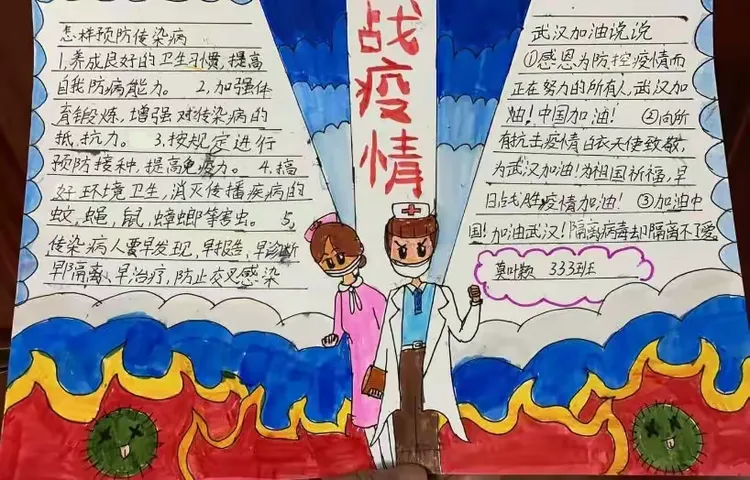 怎样预防传染病
1.养成良好的卫生习惯,提高
自我防病能力。 2,加强体
育锻炼,增强对传染病的
抵,抗力。 3.按规定进行
预防接种,提高免疫力。 4.搞
好环境卫生,消灭传播疾病的
蚊,蝇,鼠,蟑螂等害虫。 5,
传染病人要早发现,早报告,早诊断
早隔离、早治疗,防止交叉感染
战疫情
武汉加油说说
①感恩为防控疫情而
正在努力的所有人,武汉加
油!中国加油! ②向所
有抗击疫情白衣天使致敬,
为武汉加油!为祖国祈福,早
日战胜疫情加油! ③加油中
国!加油武汉!隔离病毒却隔离不了爱。
莫叶颖 333班